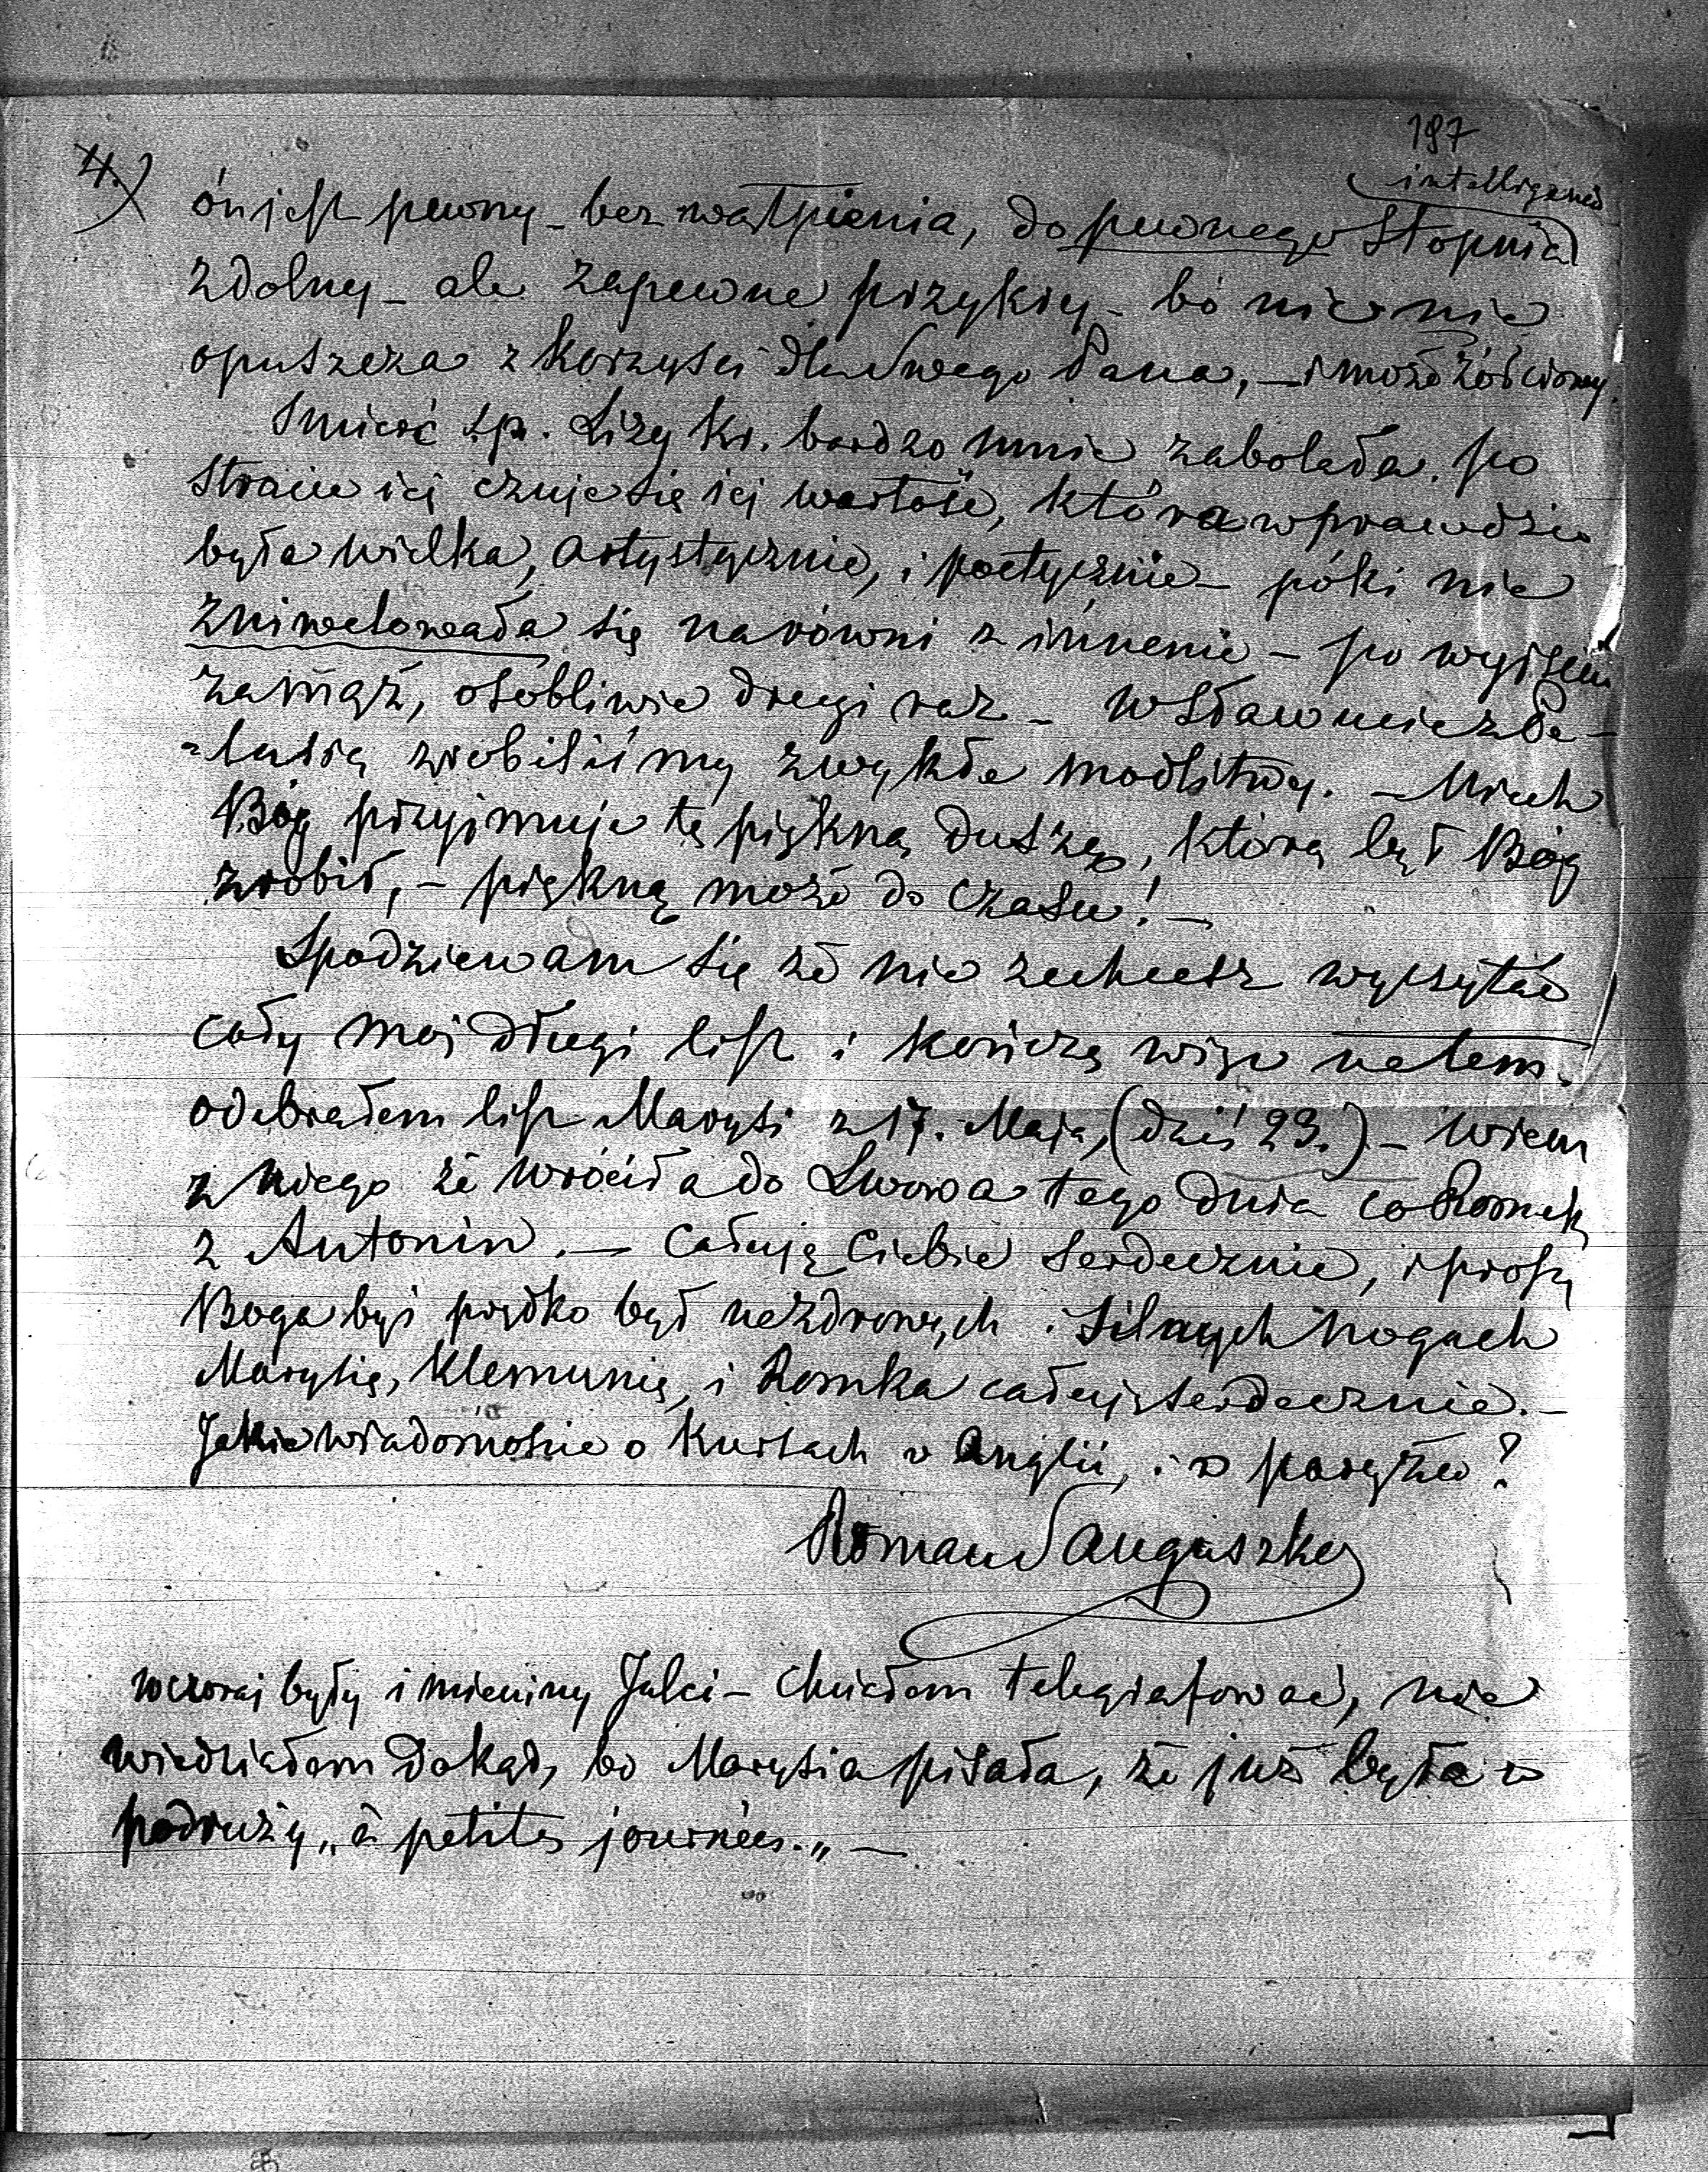 197
4.)
intelligencé
ón jest pewny – bez wątpienia, do pewnego stopnia
zdolny – ale zapewne przykry – bo nic nie
opuszcza z korzyści dla swego Pana, – i może żółciowy.
Smierć sp. Lizy Kr. bardzo mnie zabolała. po
stracie iej czuje się iej wartość, która wprawdzie
była wielka, artystycznie, i poetycznie – póki nie
zniwelowała się narówni z innemi – po wyjściu
zamąż, osobliwie drugi raz – w Sławucie z Be-
-lusią zrobiliśmy zwykłe modlitwy. – Niech
Bóg przyjmuje tę piękną duszę, którą był Bóg
zrobił, – piękną może do czasu! –
Spodziewam się że nie zechcesz wyczytać
cały moj długi list i kończę więc na tem.
odebrałem list Marysi z 17. Maja, (dziś 23.) – wiem
z niego że wróciła do Lwowa tego dnia co Romek
z Antonin. – Całuję Ciebie serdecznie, i proszę
Boga byś prędko był na zdrowych i silnych nogach
Marysię, Klemunię, i Romka całuję serdecznie. –
Jakie wiadomosci o Kursach w Anglii, i w paryżu?
Roman Sanguszko
wczoraj były imieniny Julci – chciałem telegrafować, nie
wiedziałem dokąd, bo Marysia pisała, że już była w
podruży „à petites journées." –